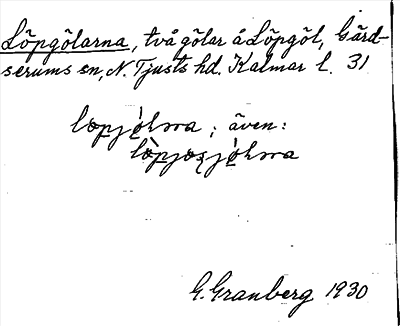 Löpgölarna, två gölar å Löpgöl, Gärd-
serums sn, N. Tjusts hd. Kalmar l. 31
; även:
G. Granberg 1930